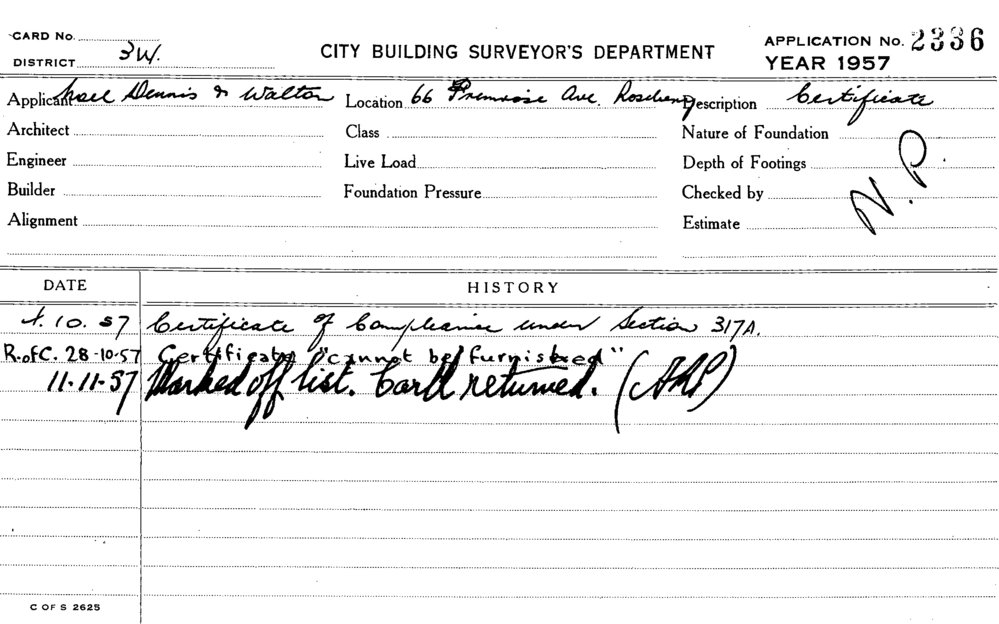 CARD No.
DISTRICT 3W.
CITY BUILDING SURVEYOR'S DEPARTMENT
APPLICATION No. 2336
YEAR 1957
Applicant Dennis & Walton Location 66 Primrose Ave. Rosebery Description Certificate
Architect Class Nature of Foundation
Engineer Live Load Depth of Footings
Builder Foundation Pressure Checked by
Alignment Estimate
N.P.
DATE HISTORY
10. 57 Certificate of Compliance under Section 317A.
R.ofC. 28-10-57 Certificate "cannot be furnished"
11-11-57 Marked off list. Card returned.
C OF S 2625